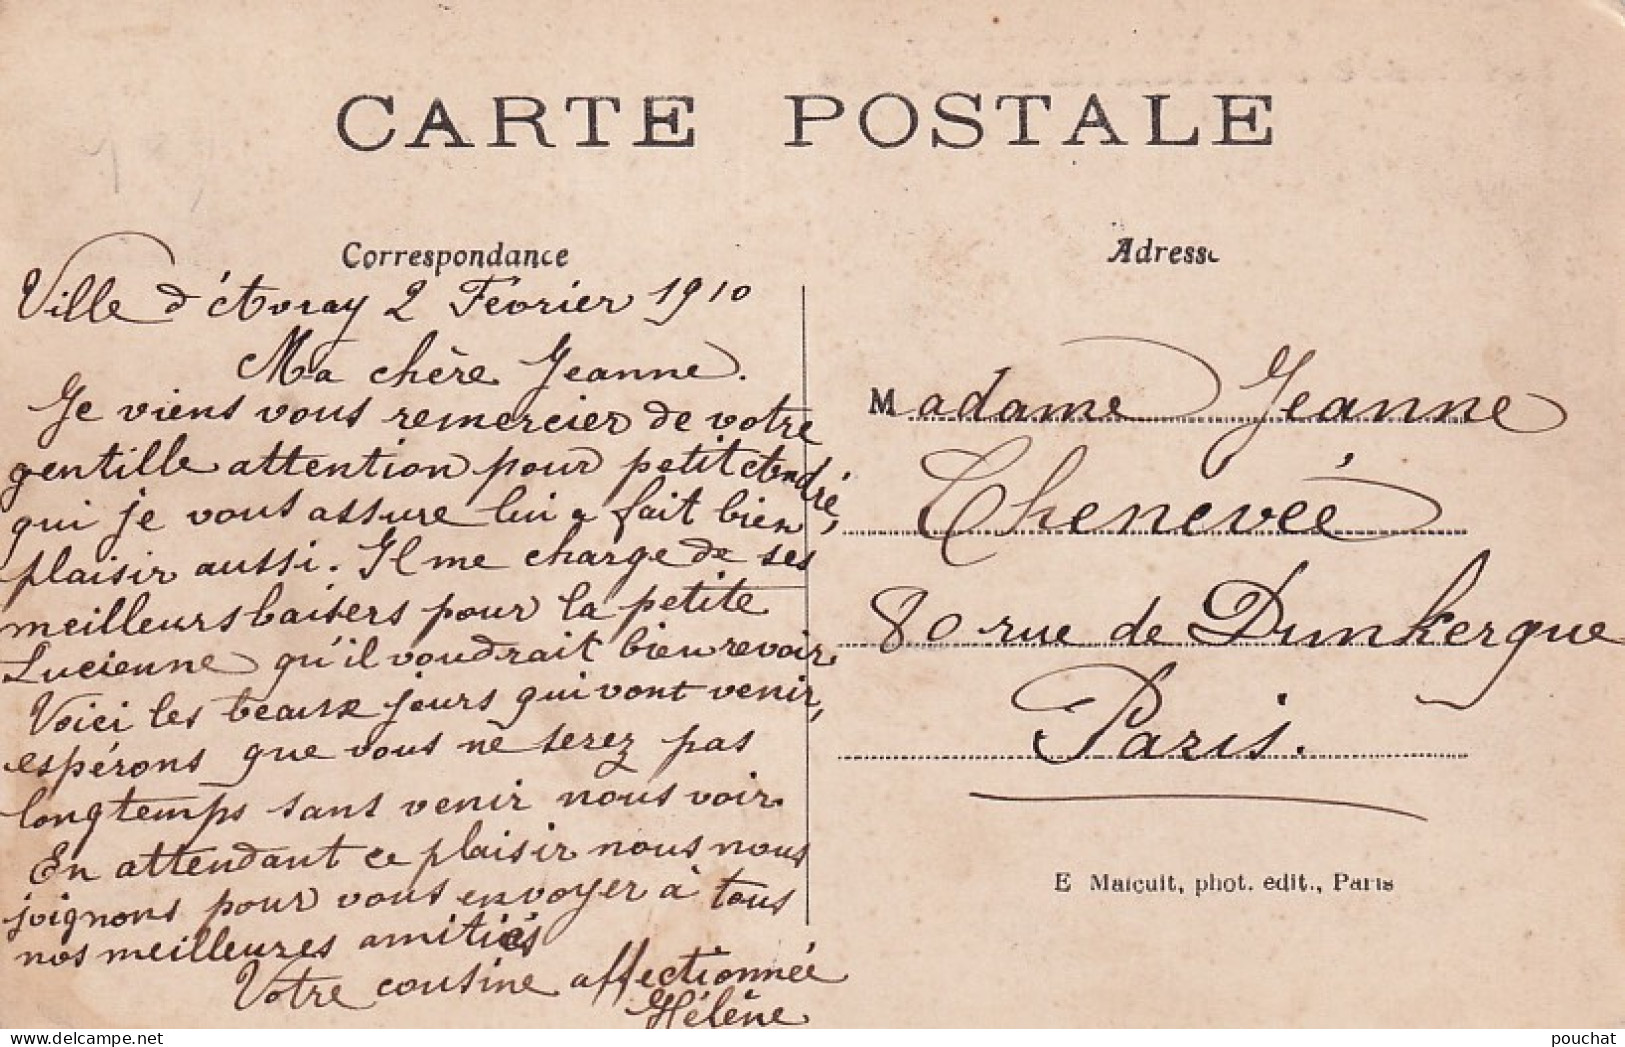 CARTE POSTALE
Correspondance
Ville d'Avray 2 Février 1910
Ma chère Jeanne.
Je viens vous remercier de votre
gentille attention pour petit André,
qui je vous assure lui a fait bien
plaisir aussi. Il me charge de ses
meilleurs baisers pour la petite
Lucienne qu'il voudrait bien revoir.
Voici les beaux jours qui vont venir,
espérons que vous ne serez pas
longtemps sans venir nous voir.
En attendant ce plaisir nous nous
joignons pour vous envoyer à tous
nos meilleures amitiés
Votre cousine affectionnée
Hélène
Adresse
Madame Jeanne
Thenevée
80 rue de Dunkerque
Paris.
E Malcuit, phot. édit., Paris
pouchat